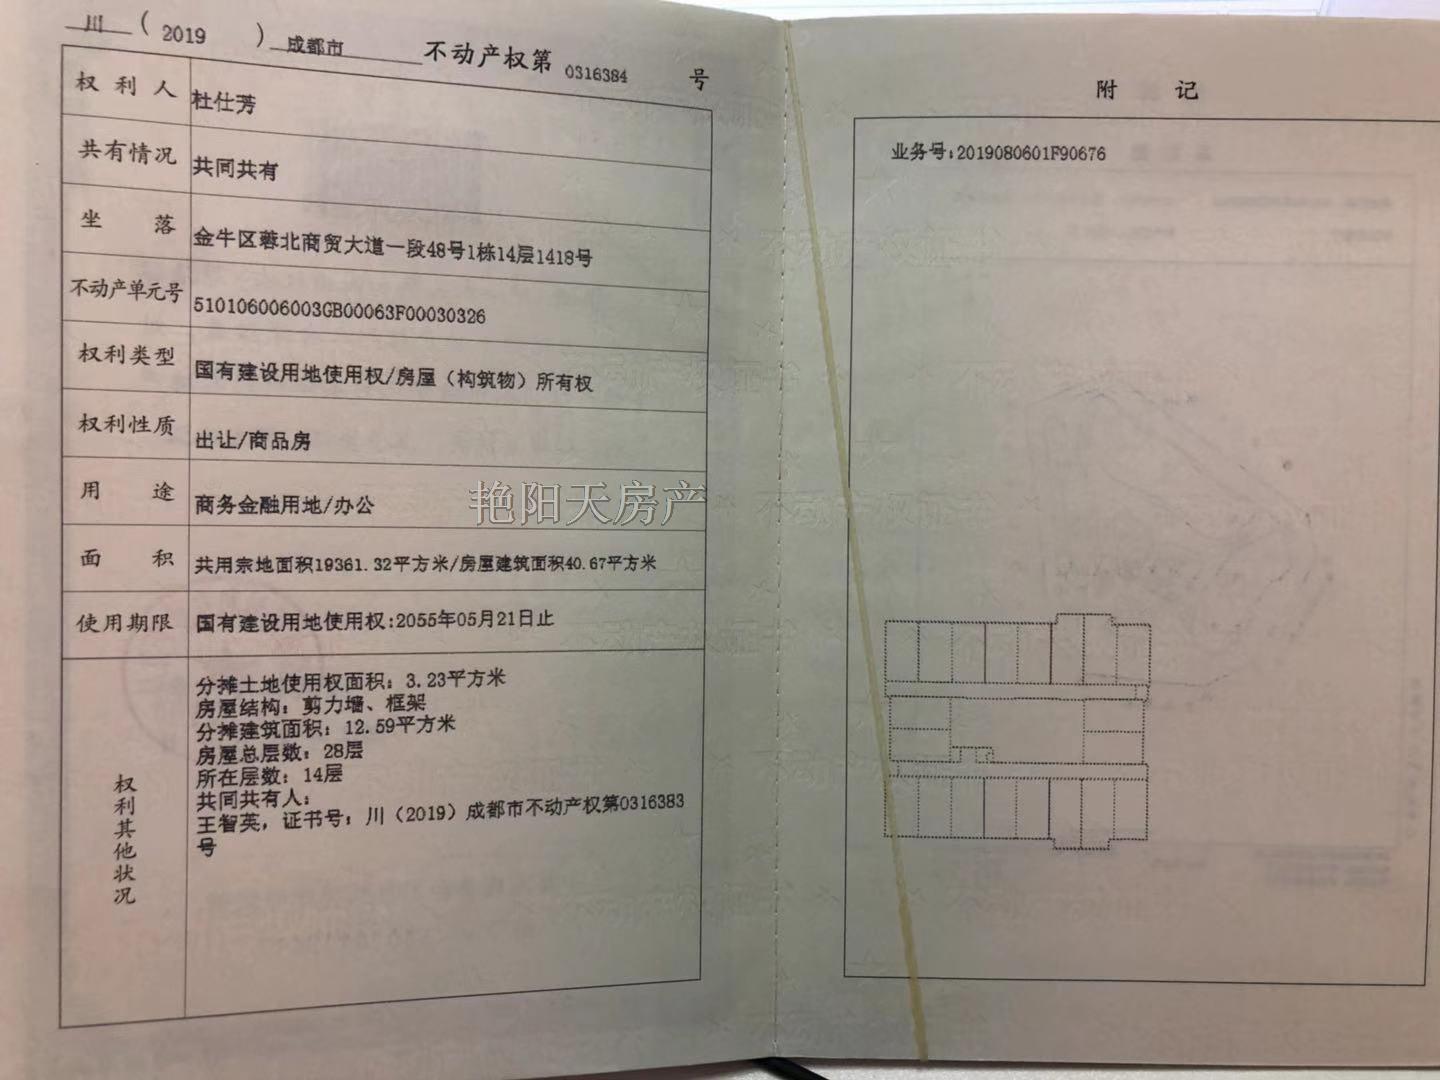 川（2019）成都市 不动产权第 0316384 号
权利人 杜仕芳
共有情况 共同共有
坐落 金牛区蓉北商贸大道一段48号1栋14层1418号
不动产单元号 510106006003GB00063F00030326
权利类型 国有建设用地使用权/房屋（构筑物）所有权
权利性质 出让/商品房
用途 商务金融用地/办公
面积 共用宗地面积19361.32平方米/房屋建筑面积40.67平方米
使用期限 国有建设用地使用权:2055年05月21日止
权利其他状况
分摊土地使用权面积：3.23平方米
房屋结构：剪力墙、框架
分摊建筑面积：12.59平方米
房屋总层数：28层
所在层数：14层
共同共有人：
王智英，证书号：川（2019）成都市不动产权第0316383
号
艳阳天房产
附记
业务号:2019080601F90676